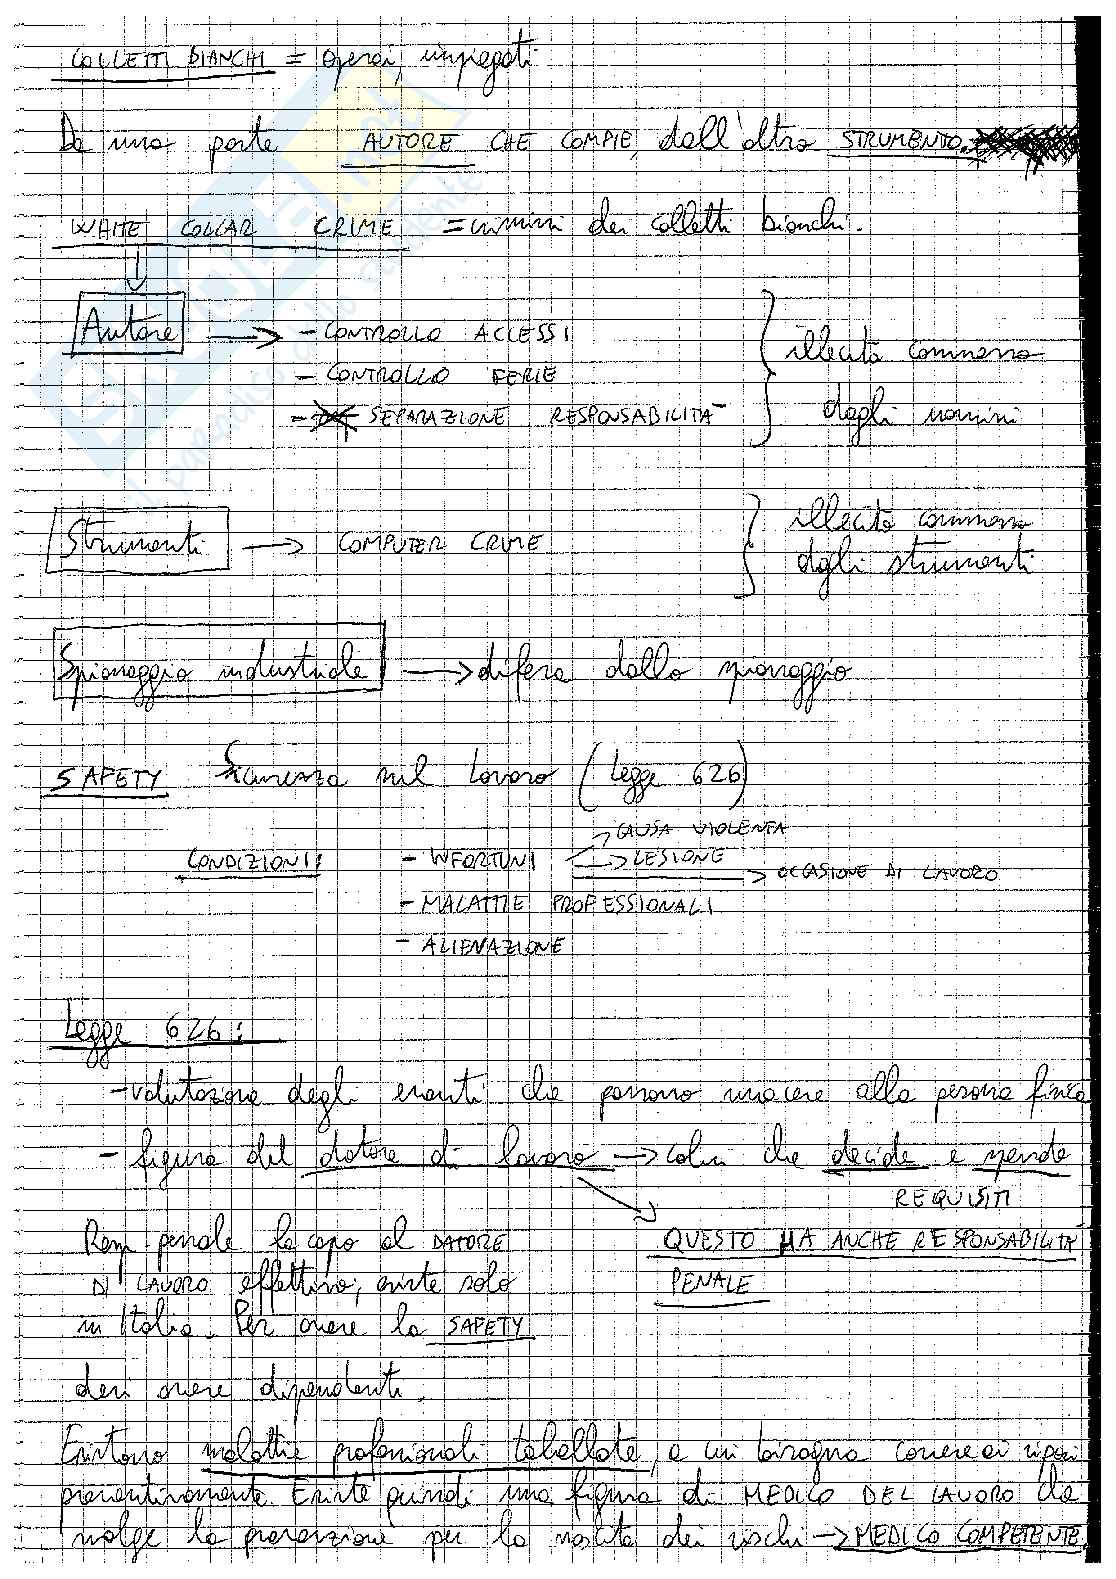 COLLETTI BIANCHI = operai, impiegati
Da una parte AUTORE CHE COMPIE, dall'altra STRUMENTO.
WHITE COLLAR CRIME = crimini dei colletti bianchi.
Autore → - CONTROLLO ACCESSI
- CONTROLLO FERIE
- SEPARAZIONE RESPONSABILITA'
illecito commesso
dagli uomini
Strumenti → COMPUTER CRIME
illecito commesso
dagli strumenti
Spionaggio industriale → difesa dallo spionaggio
SAFETY Sicurezza sul lavoro (Legge 626)
CONDIZIONI: - INFORTUNI → CAUSA VIOLENTA
→ LESIONE
→ OCCASIONE DI LAVORO
- MALATTIE PROFESSIONALI
- ALIENAZIONE
Legge 626:
- valutazione degli eventi che possono nuocere alla persona fisica
- figura del datore di lavoro → colui che decide e spende
REQUISITI
QUESTO HA ANCHE RESPONSABILITÀ
PENALE
Resp penale fa capo al DATORE
DI LAVORO effettivo, esiste solo
in Italia. Per avere la SAFETY
devi avere dipendenti.
Esistono malattie professionali tabellate, e cui bisogna correre ai ripari
preventivamente. Esiste quindi una figura di MEDICO DEL LAVORO che
svolge la prevenzione per la nascita dei rischi → MEDICO COMPETENTE.